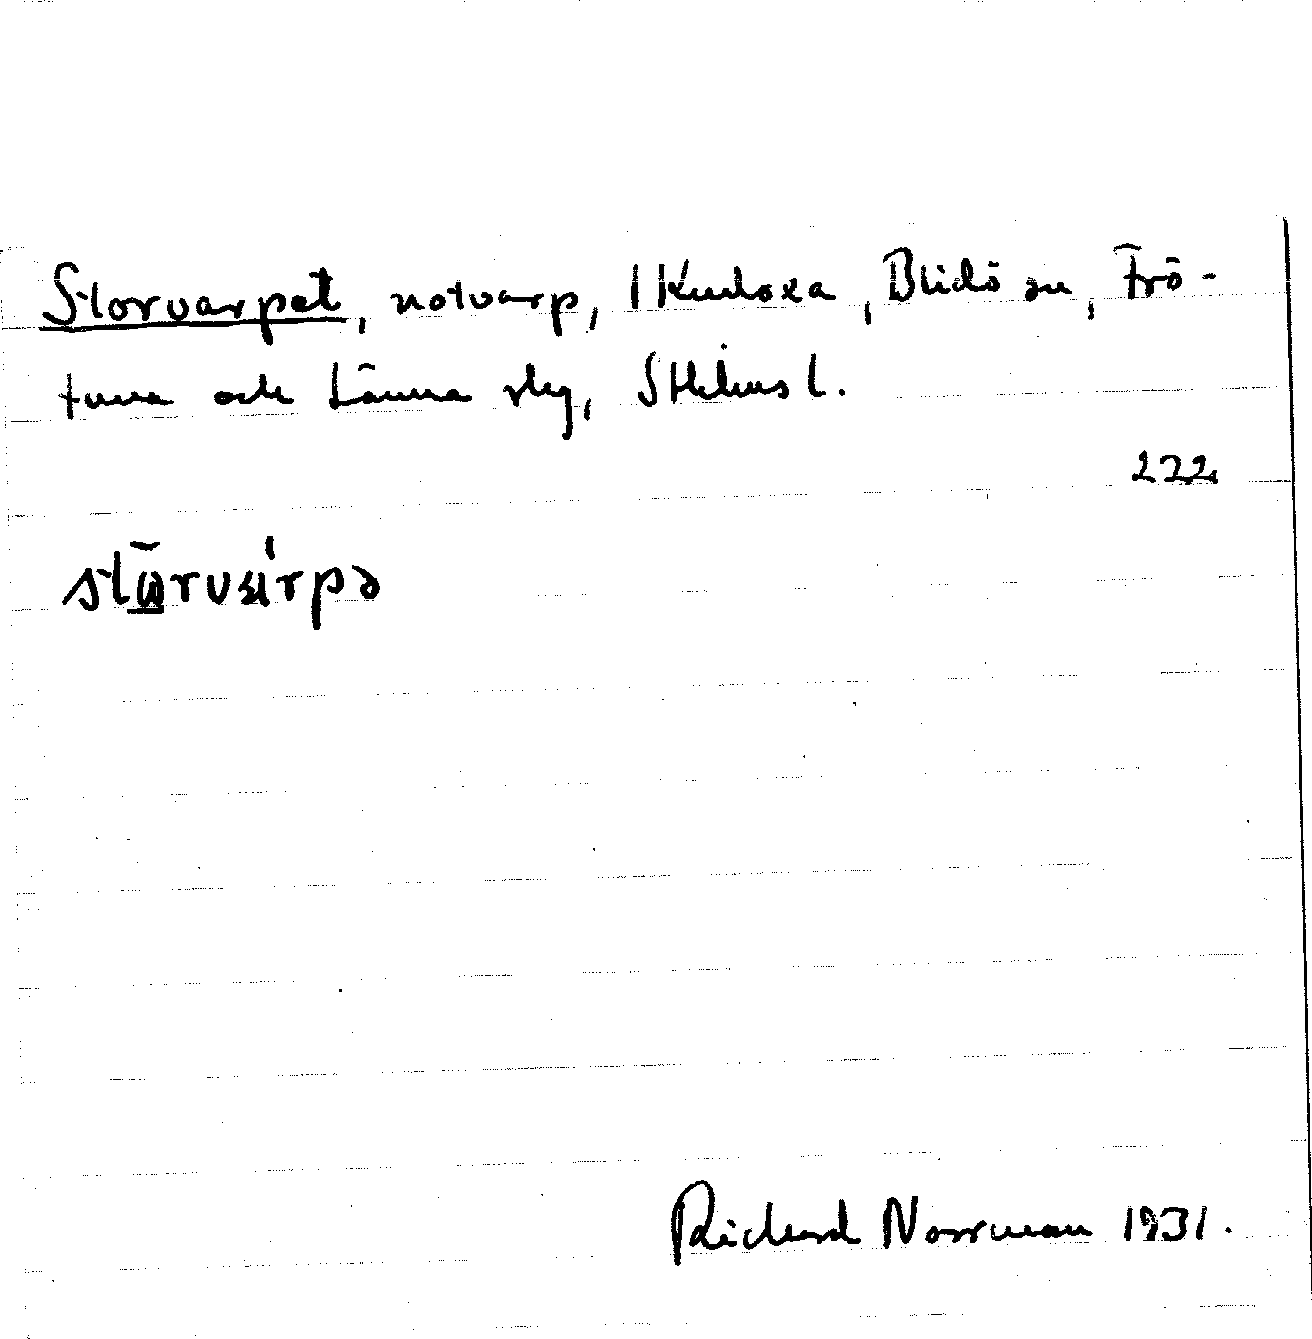 Storvarpet, notvarp, 1 Kudoxa, Blidö sn, Frö-
tuna och Länna slg, Sthlms l.
222
stω̄rvαrpə
Richard Norrman 1931.